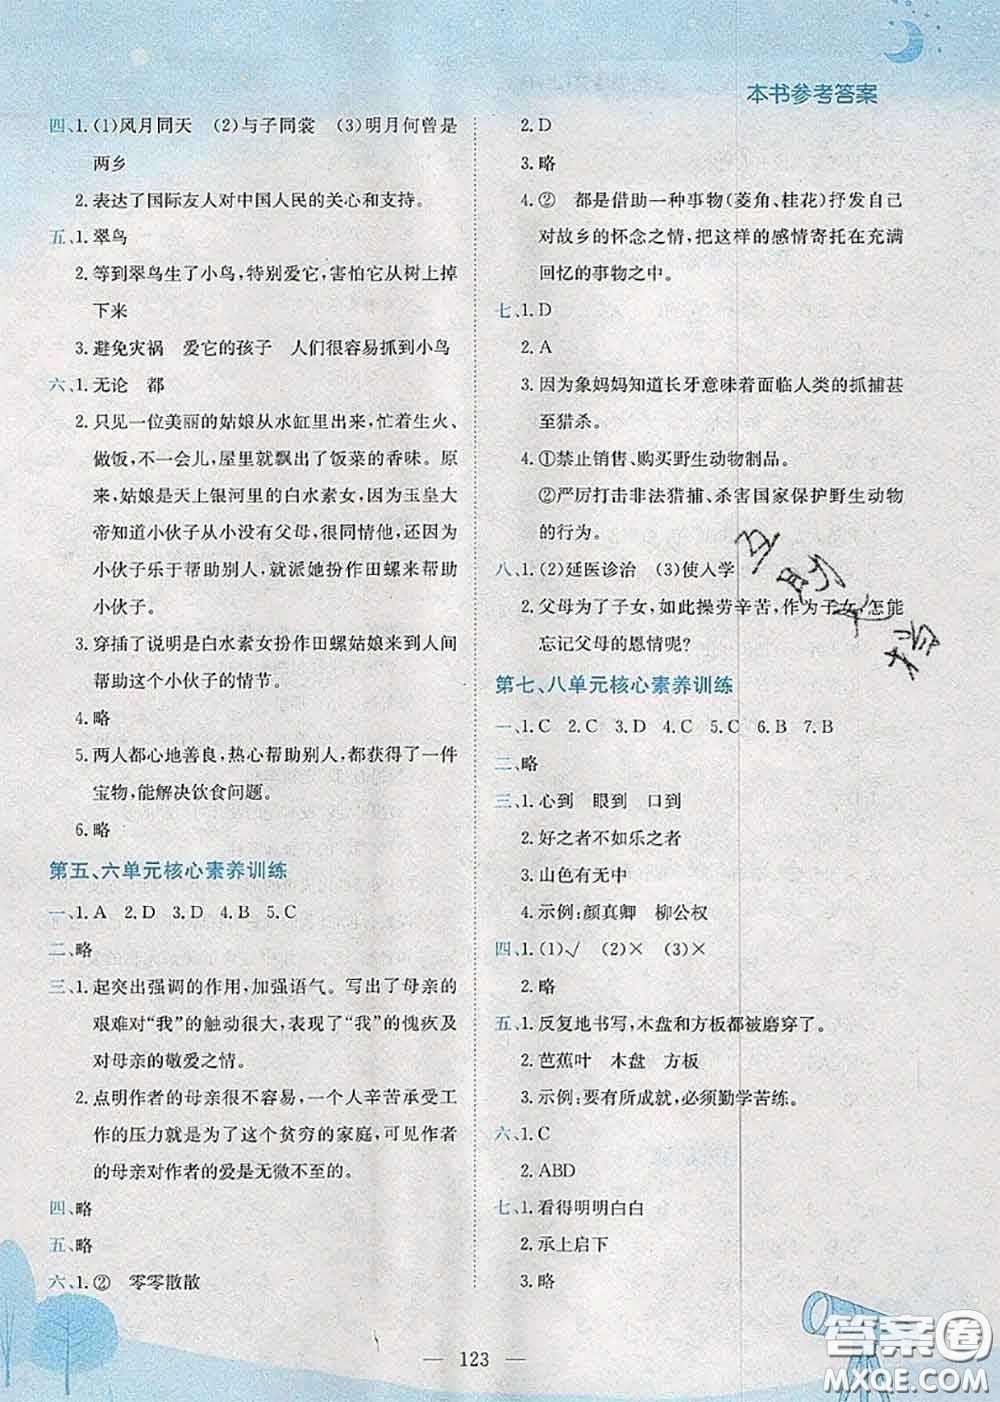 本书参考答案
四、1.(1)风月同天　(2)与子同裳　(3)明月何曾是
两乡
2.表达了国际友人对中国人民的关心和支持。
五、1.翠鸟
2.等到翠鸟生了小鸟,特别爱它,害怕它从树上掉
下来
3.避免灾祸　爱它的孩子　人们很容易抓到小鸟
六、1.无论　都
2.只见一位美丽的姑娘从水缸里出来,忙着生火、
做饭,不一会儿,屋里就飘出了饭菜的香味。原
来,姑娘是天上银河里的白水素女,因为玉皇大
帝知道小伙子从小没有父母,很同情他,还因为
小伙子乐于帮助别人,就派她扮作田螺来帮助
小伙子。
3.穿插了说明是白水素女扮作田螺姑娘来到人间
帮助这个小伙子的情节。
4.略
5.两人都心地善良,热心帮助别人,都获得了一件
宝物,能解决饮食问题。
6.略
第五、六单元核心素养训练
一、1.A　2.D　3.D　4.B　5.C
二、略
三、1.起突出强调的作用,加强语气。写出了母亲的
艰难对“我”的触动很大,表现了“我”的愧疚及
对母亲的敬爱之情。
2.点明作者的母亲很不容易,一个人辛苦承受工
作的压力就是为了这个贫穷的家庭,可见作者
的母亲对作者的爱是无微不至的。
四、略
五、略
六、1.②　零零散散
2.D
3.略
4.②　都是借助一种事物(菱角、桂花)抒发自己
对故乡的怀念之情,把这样的感情寄托在充满
回忆的事物之中。
七、1.D
2.A
3.因为象妈妈知道长牙意味着面临人类的抓捕甚
至猎杀。
4.①禁止销售、购买野生动物制品。
②严厉打击非法猎捕、杀害国家保护野生动物
的行为。
八、1.(2)延医诊治　(3)使入学
2.父母为了子女,如此操劳辛苦,作为子女,怎能
忘记父母的恩情呢?
第七、八单元核心素养训练
一、1.C　2.C　3.D　4.C　5.C　6.B　7.B
二、略
三、1.心到　眼到　口到
2.好之者不如乐之者
3.山色有无中
4.示例:颜真卿　柳公权
四、1.(1)√　(2)×　(3)×
2.略
五、1.反复地书写,木盘和方板都被磨穿了。
2.芭蕉叶　木盘　方板
3.示例:要有所成就,必须勤学苦练。
六、1.C
2.ABD
七、1.看得明明白白
2.承上启下
3.略
123
答案圈
MXQE.COM